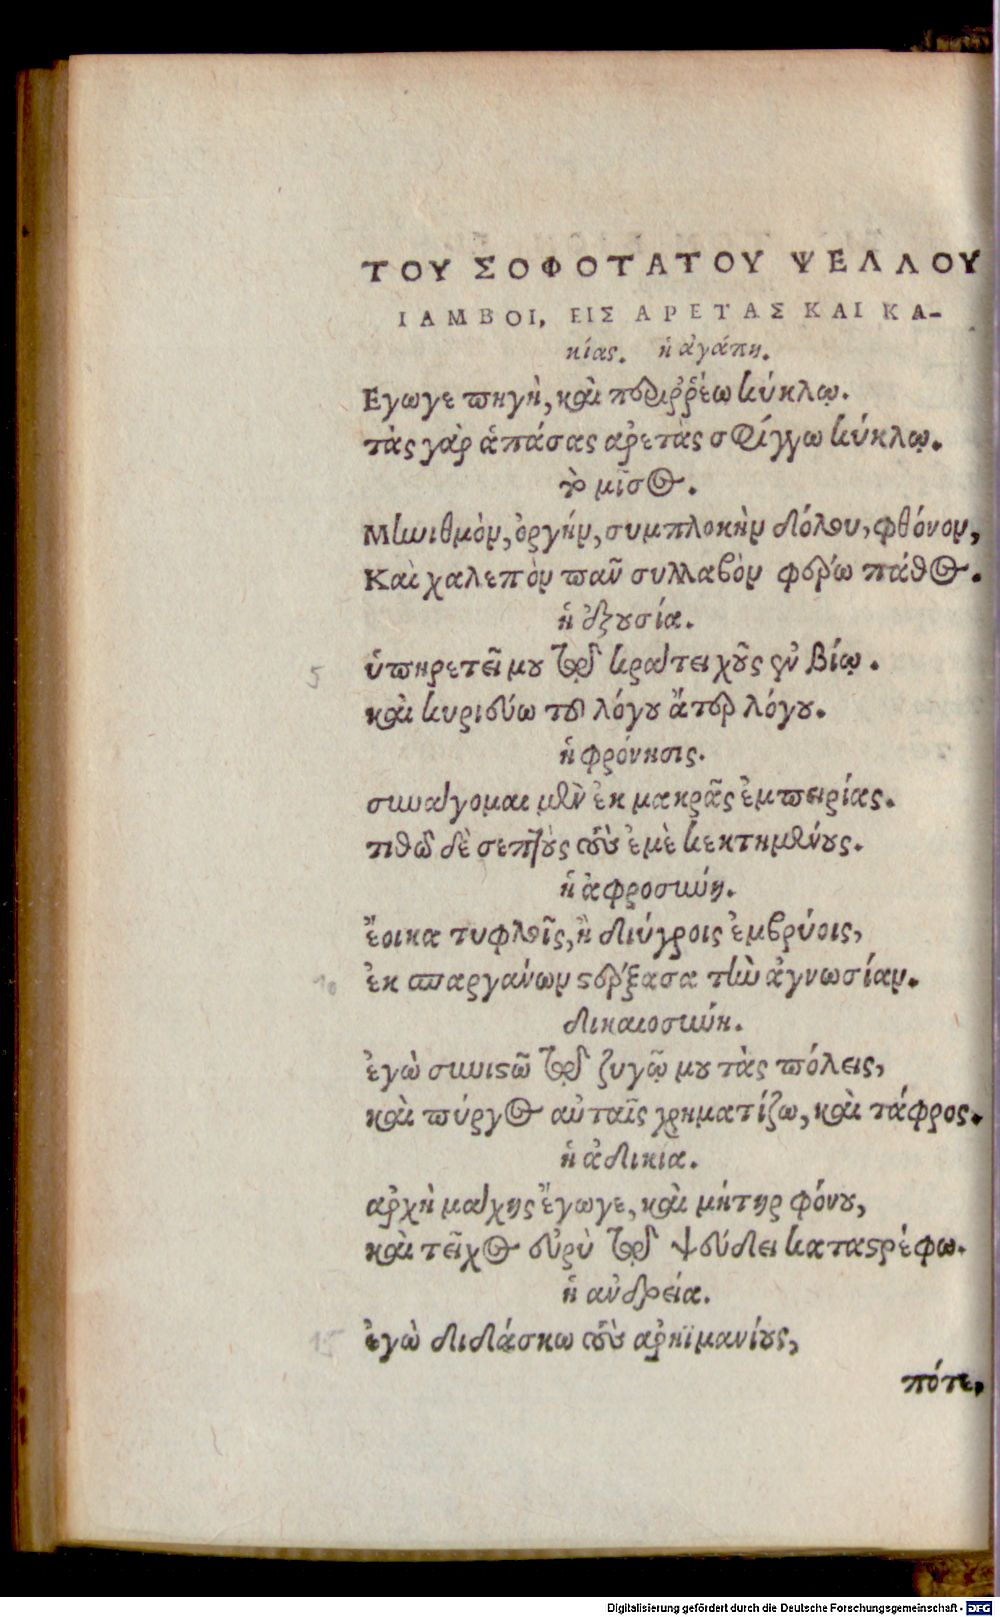 ΤΟΥ ΣΟΦΟΤΑΤΟΥ ΨΕΛΛΟΥ
ΙΑΜΒΟΙ, ΕΙΣ ΑΡΕΤΑΣ ΚΑΙ ΚΑ-
κίας. ἡ ἀγάπη.
Εγωγε πηγὴ, καὶ περιῤῥέω κύκλῳ.
τὰς γὰρ ἁπάσας ἀρετὰς σφίγγω κύκλῳ.
τὸ μῖσος.
Μηνιθμὸν, ὀργὴν, συμπλοκὴν δόλου, φθόνον,
Καὶ χαλεπὸν πᾶν συλλαβὸν φέρω πάθος.
ἡ ἐξουσία.
ὑπηρετεῖ μου τῷ κράτει χοῦς ἐν βίῳ.
καὶ κυριεύω τοῦ λόγου ἄτερ λόγου.
ἡ φρόνησις.
συνάγομαι μὲν ἐκ μακρᾶς ἐμπειρίας.
τιθῶ δὲ σεπτοὺς τοὺς ἐμὲ κεκτημένους.
ἡ ἀφροσύνη.
ἔοικα τυφλοῖς, ἢ διύγροις ἐμβρύοις,
ἐκ σπαργάνων στέρξασα τὴν ἀγνωσίαν.
δικαιοσύνη.
ἐγὼ συνιστῶ τῷ ζυγῷ μου τὰς πόλεις,
καὶ πύργος αὐταῖς χρηματίζω, καὶ τάφρος.
ἡ ἀδικία.
ἀρχὴ μάχης ἔγωγε, καὶ μήτηρ φόνου,
καὶ τεῖχος εὐρὺ τῷ ψεύδει καταστρέφω.
ἡ ἀνδρεία.
ἐγὼ διδάσκω τοὺς ἀρηϊμανίους,
πότε,
5
10
15
Digitalisierung gefördert durch die Deutsche Forschungsgemeinschaft - DFG